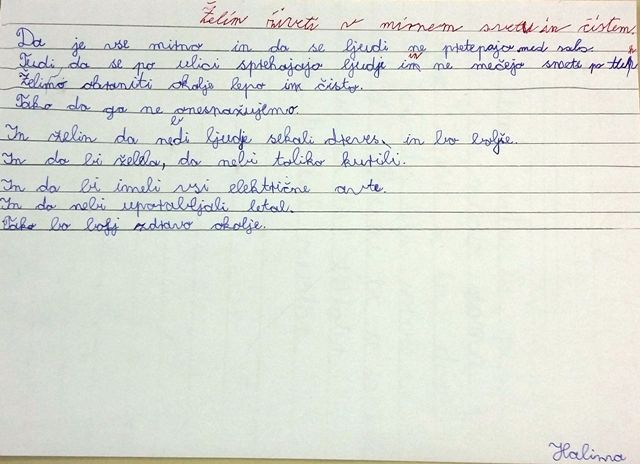 Želim živeti v mirnem svetu in čistem.
Da je vse mirno in da se ljudi ne pretepajo med sabo.
Tudi, da se po ulici sprehajajo ljudje in ne mečejo smeti po tleh
Želimo ohraniti okolje lepo in čisto.
Tako da ga ne onesnažujemo.
In želin da nebi ljudje sekali dreves, in bo bolše.
In da bi želela, da nebi toliko kurili.
In da bi imeli vsi električne avte.
In da nebi uporabljali letal.
Tako bo bolj zdravo okolje.
Halima